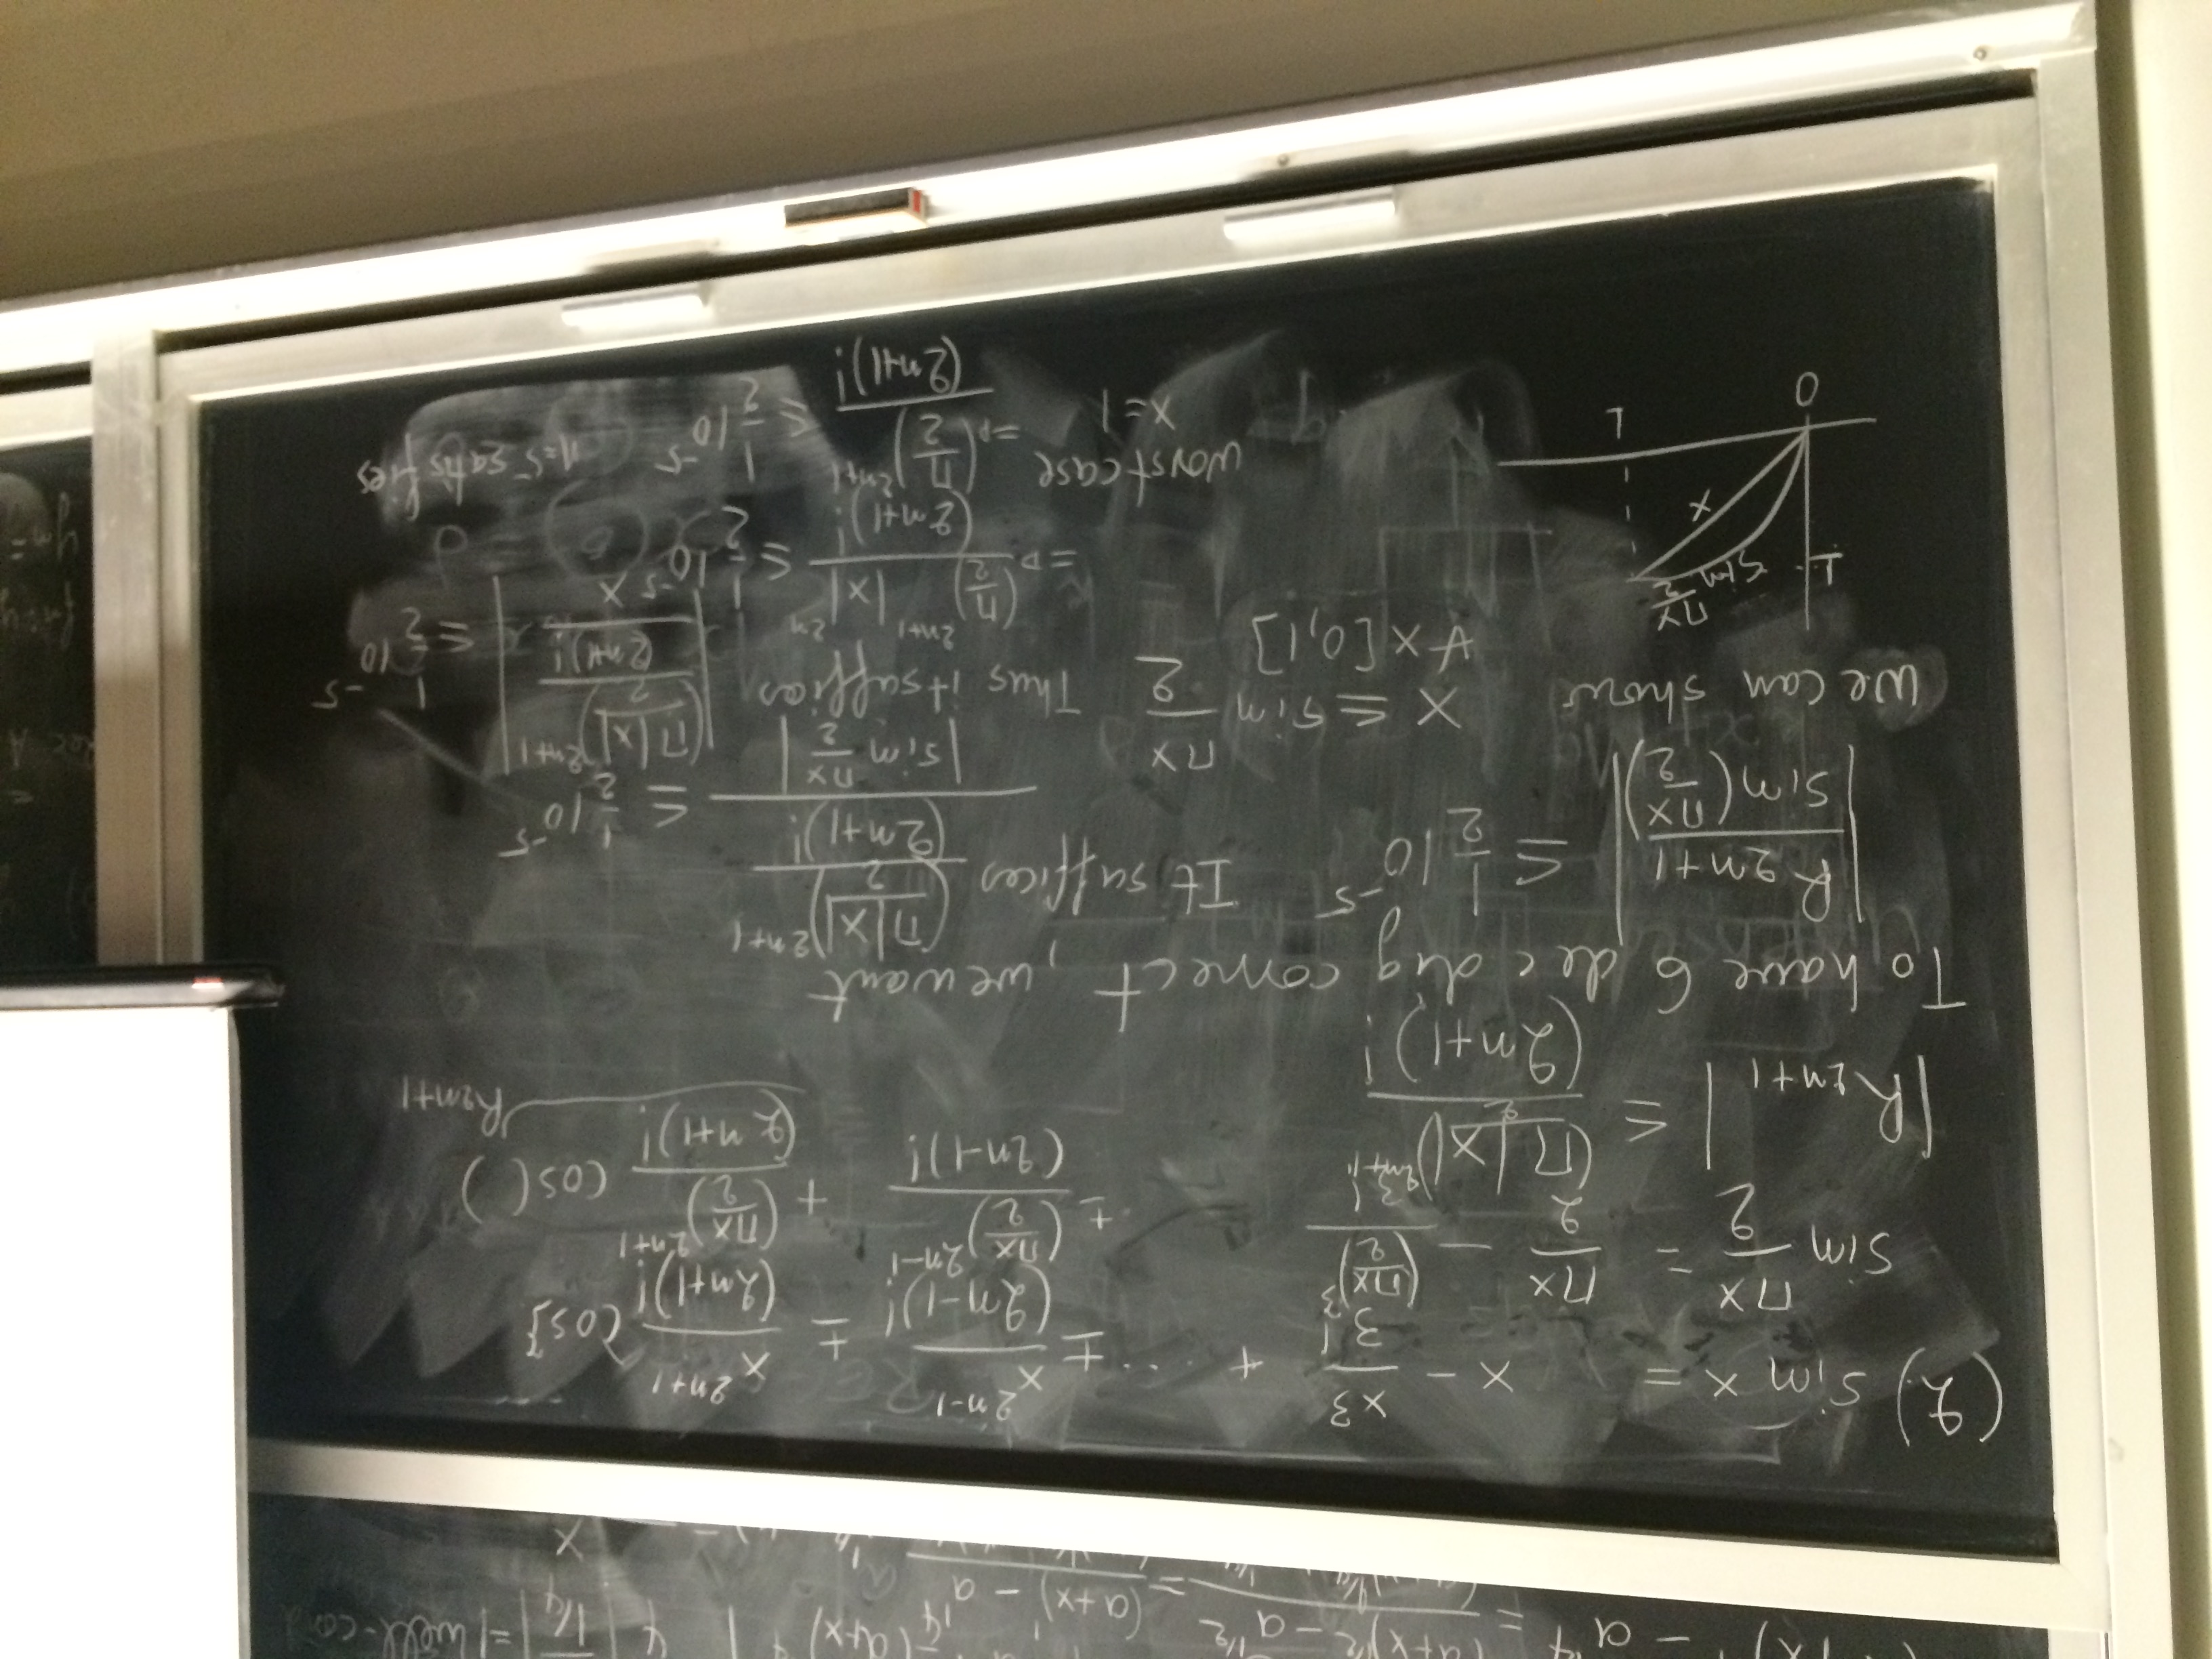 - a^{1/4} = \frac{(a+x)^{1/2} - a^{1/2}}{} = \frac{(a+x)^{1} - a^{1/4}}{}
\frac{}{1/4}| = 1 well-cond
x
(2) sin x = x - \frac{x3}{3!} + ... ± \frac{x^{2n-1}}{(2n-1)!} ± \frac{x^{2n+1}}{(2n+1)!} cos ξ
sin \frac{πx}{2} = \frac{πx}{2} - \frac{(\frac{πx}{2})^3}{3!} ± \frac{(\frac{πx}{2})^{2n-1}}{(2n-1)!} + \frac{(\frac{πx}{2})^{2n+1}}{(2n+1)!} cos( )
R_{2n+1}
|R_{2n+1}| ≤ \frac{(\frac{π|x|}{2})^{2n+1}}{(2n+1)!}
To have 6 dec dig correct, we want
|\frac{R_{2n+1}}{sin(\frac{πx}{2})}| ≤ \frac{1}{2} 10^{-5} It suffices \frac{\frac{(\frac{π|x|}{2})^{2n+1}}{(2n+1)!}}{|sin \frac{πx}{2}|} ≤ \frac{1}{2} 10^{-5}
We can show x ≤ sin \frac{πx}{2} Thus it suffices |\frac{\frac{(\frac{π|x|}{2})^{2n+1}}{(2n+1)!}}{x}| ≤ \frac{1}{2} 10^{-5}
∀x [0,1]
=> \frac{(\frac{π}{2})^{2n+1} |x|^{2n}}{(2n+1)!} ≤ \frac{1}{2} 10^{-5}
1 sin \frac{πx}{2}
x
0 1
worst case x=1 => \frac{(\frac{π}{2})^{2n+1}}{(2n+1)!} ≤ \frac{1}{2} 10^{-5} n=5 satisfies